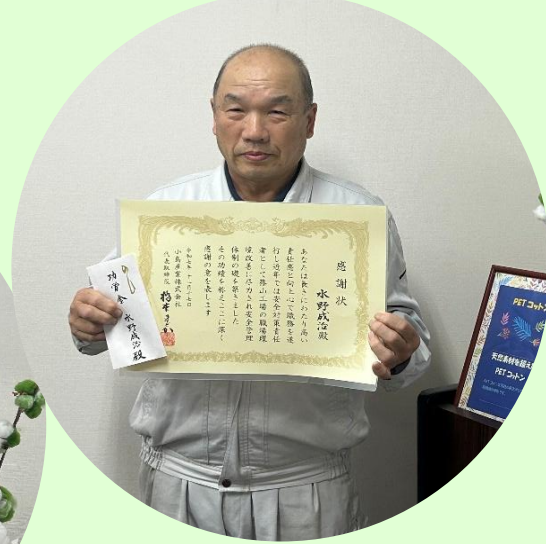 感謝状
水野成治殿
あなたは長きにわたり高い
責任感と向上心で職務を遂
行し近年では安全対策責任
者として篠山工場の職場環
境改善に尽力され安全管理
体制の礎を築きました
その功績を称えここに深く
感謝の意を表します
令和七年十一月二十七日
小島産業株式会社
代表取締役
功労金
水野成治殿
PETコットン
天然素材を超え
PETコットン